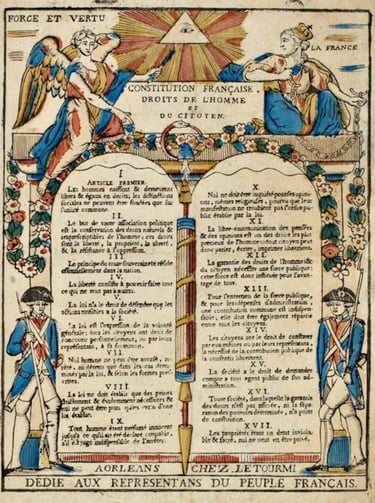 FORCE ET VERTU
LA FRANCE
CONSTITUTION FRANÇAISE.
DROITS DE L'HOMME
ET
DU CITOYEN.
I
ARTICLE PREMIER.
Les hommes naissent & demeurent
libres & égaux en droits, les distinctions
sociales ne peuvent être fondées que sur
l'utilité commune.
II.
Le but de toute association politique
est la conservation des droits naturels &
imprescriptibles de l'homme; ces droits
sont la liberté, la propriété, la sûreté,
& la résistance à l'oppression.
III.
Le principe de toute souveraineté réside
essentiellement dans la nation.
IV.
La liberté consiste à pouvoir faire tout
ce qui ne nuit pas à autrui.
V.
La loi n'a le droit de défendre que les
actions nuisibles à la société.
VI.
La loi est l'expression de la volonté
générale; tous les citoyens ont droit de
concourir personnellement, ou par leurs
représentans, à sa formation.
VII.
Nul homme ne peut être accusé,
ni détenu que dans les cas déter-
minés par la loi, & selon les formes
prescrites.
VIII.
La loi ne doit établir que des peines
strictement & évidemment nécessaires &
nul ne peut être puni qu'en vertu d'une
loi établie.
IX.
Tout homme étant présumé innocent
jusqu'à ce qu'il ait été déclaré coupable,
s'il est jugé indispensable de l'arrêter.
X.
Nul ne doit être inquiété pour ses opinions,
même religieuses, pourvu que leur
manifestation ne trouble pas l'ordre public
établi par la loi.
XI.
La libre communication des pensées
& des opinions est un des droits les plus
précieux de l'homme: tout citoyen peut
donc parler, écrire, imprimer librement.
XII.
La garantie des droits de l'homme & du
citoyen nécessite une force publique;
cette force est donc instituée pour l'avan-
tage de tous.
XIII.
Pour l'entretien de la force publique,
& pour les dépenses d'administration,
une contribution commune est indispen-
sable; elle doit être également répartie
entre tous les citoyens.
XIV.
Les citoyens ont le droit de constater
par eux-mêmes ou par leurs représentans,
la nécessité de la contribution publique de
la consentir librement.
XV.
La société a le droit de demander
compte à tout agent public de son ad-
ministration.
XVI.
Toute société, dans laquelle la garantie
des droits n'est pas assurée, ni la sépa-
ration des pouvoirs déterminée, n'a point
de constitution.
XVII.
Les propriétés étant un droit inviola-
ble & sacré, nul ne peut en être privé.
A ORLEANS CHEZ LETOURMI
DÉDIÉ AUX REPRÉSENTANS DU PEUPLE FRANÇAIS.